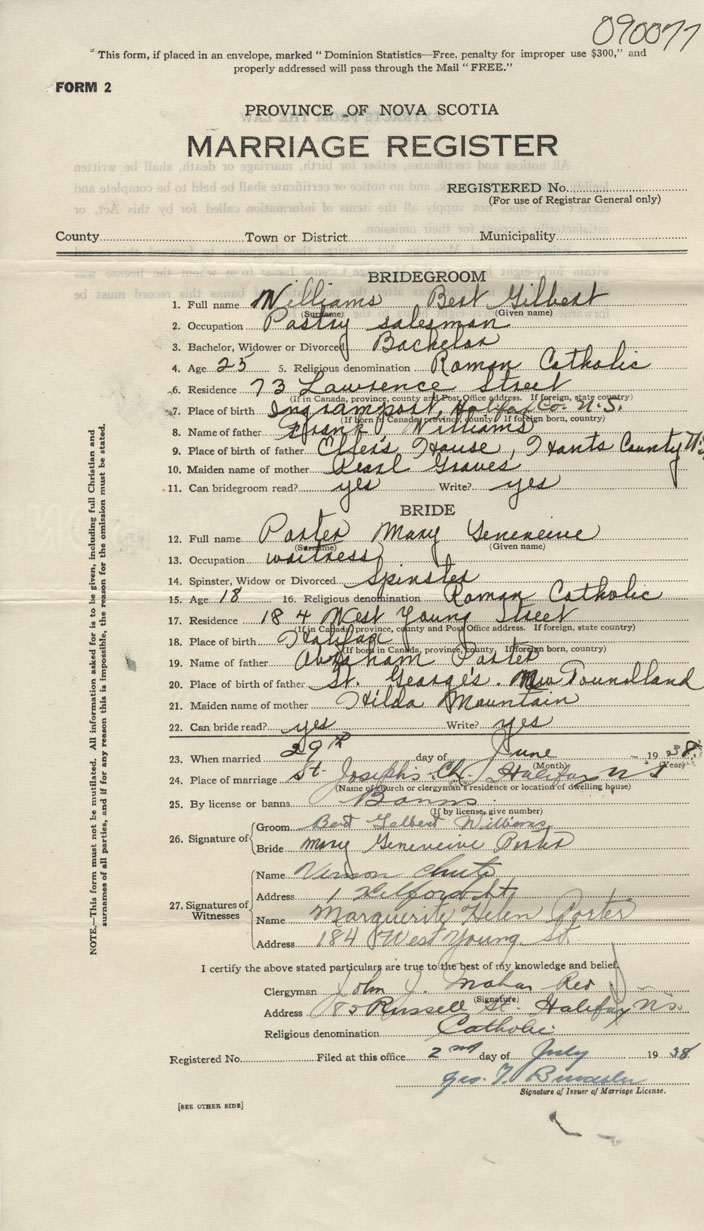 090077
"This form, if placed in an envelope, marked "Dominion Statistics—Free, penalty for improper use $300," and
properly addressed will pass through the Mail "FREE."
FORM 2
PROVINCE OF NOVA SCOTIA
MARRIAGE REGISTER
REGISTERED No.
(For use of Registrar General only)
County Town or District Municipality
BRIDEGROOM
1. Full name Williams Bert Gilbert
(Surname) (Given name)
2. Occupation Pastry salesman
3. Bachelor, Widower or Divorced Bachelor
4. Age 25 5. Religious denomination Roman Catholic
6. Residence 73 Lawrence Street
(If in Canada, province, county and Post Office address. If foreign, state country)
7. Place of birth Ingramport, Halifax Co. N.S.
(If born in Canada, province, county. If foreign born, country)
8. Name of father Frank Williams
9. Place of birth of father House, Hants County N.S
10. Maiden name of mother Pearl Graves
11. Can bridegroom read? yes Write? yes
BRIDE
12. Full name Porter Mary Genevieve
(Surname) (Given name)
13. Occupation waitress
14. Spinster, Widow or Divorced Spinster
15. Age 18 16. Religious denomination Roman Catholic
17. Residence 184 West Young Street
(If in Canada, province, county and Post Office address. If foreign, state country)
18. Place of birth Halifax
(If born in Canada, province, county. If foreign born, country)
19. Name of father Abraham Porter
20. Place of birth of father St. George's. New Foundland
21. Maiden name of mother Hilda Mountain
22. Can bride read? yes Write? yes
23. When married 29th day of June 1938
(Month) (Year)
24. Place of marriage St. Joseph's Ch. Halifax N S
(Name of church or clergyman's residence or location of dwelling house)
25. By license or banns Banns
(If by license, give number)
26. Signature of
Groom Bert Gelbert Williams
Bride Mary Genevieve Porter
27. Signatures of Witnesses
Name Vernon
Address 1 St
Name Marguerite Helen Porter
Address 184 West Young St.
I certify the above stated particulars are true to the best of my knowledge and belief.
Clergyman John J. Mahar Rev
(Signature)
Address 85 Russell St Halifax N.S.
Religious denomination Catholic
Registered No. Filed at this office 2nd day of July 1938
Geo. T.
Signature of Issuer of Marriage License.
[SEE OTHER SIDE]
NOTE.—This form must not be mutilated. All information asked for is to be given, including full Christian and
surnames of all parties, and if for any reason this is impossible, the reason for the omission must be stated.